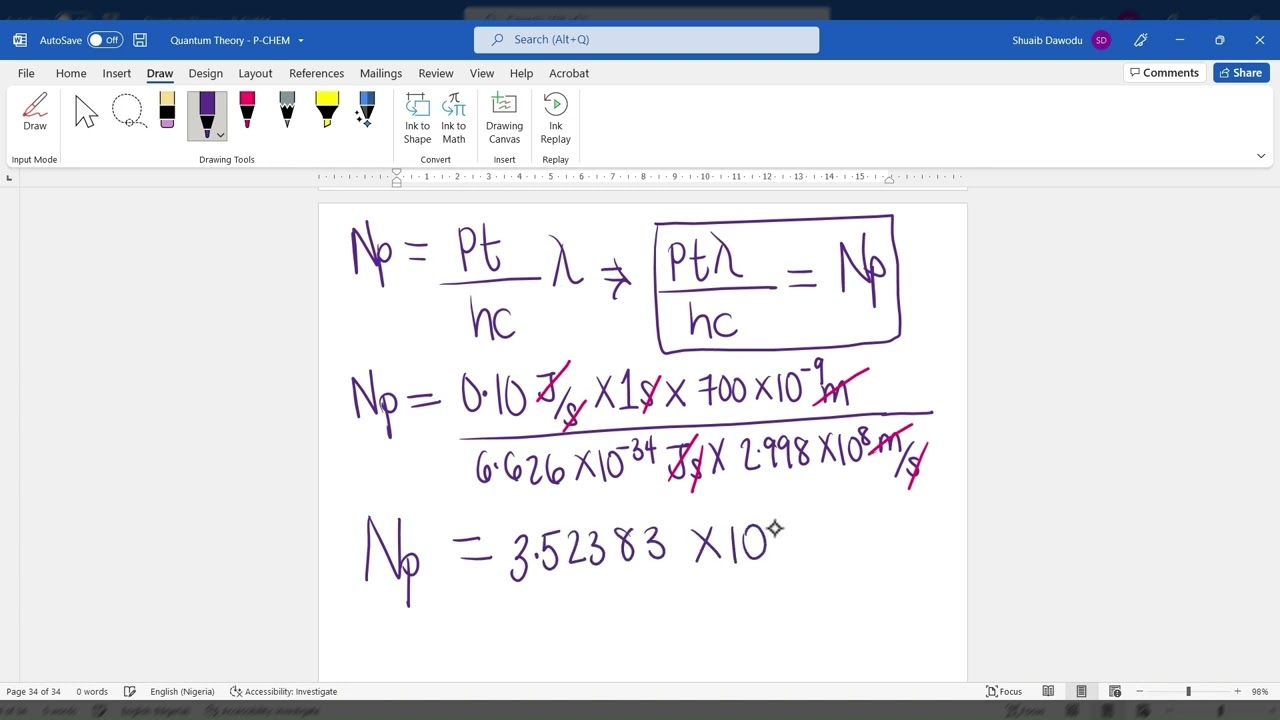 AutoSave Off Quantum Theory - P-CHEM Search (Alt+Q) Shuaib Dawodu SD
File Home Insert Draw Design Layout References Mailings Review View Help Acrobat Comments Share
Draw Ink to Shape Ink to Math Drawing Canvas Ink Replay
Input Mode Drawing Tools Convert Insert Replay
1 2 3 4 5 6 7 8 9 10 11 12 13 14 15
Np = Pt/hc λ ⇒ Ptλ/hc = Np
Np = 0.10 J/s × 1s × 700 × 10⁻⁹ m
6.626 × 10⁻³⁴ Js × 2.998 × 10⁸ m/s
Np = 3.52383 × 10
Page 34 of 34 0 words English (Nigeria) Accessibility: Investigate Focus 98%